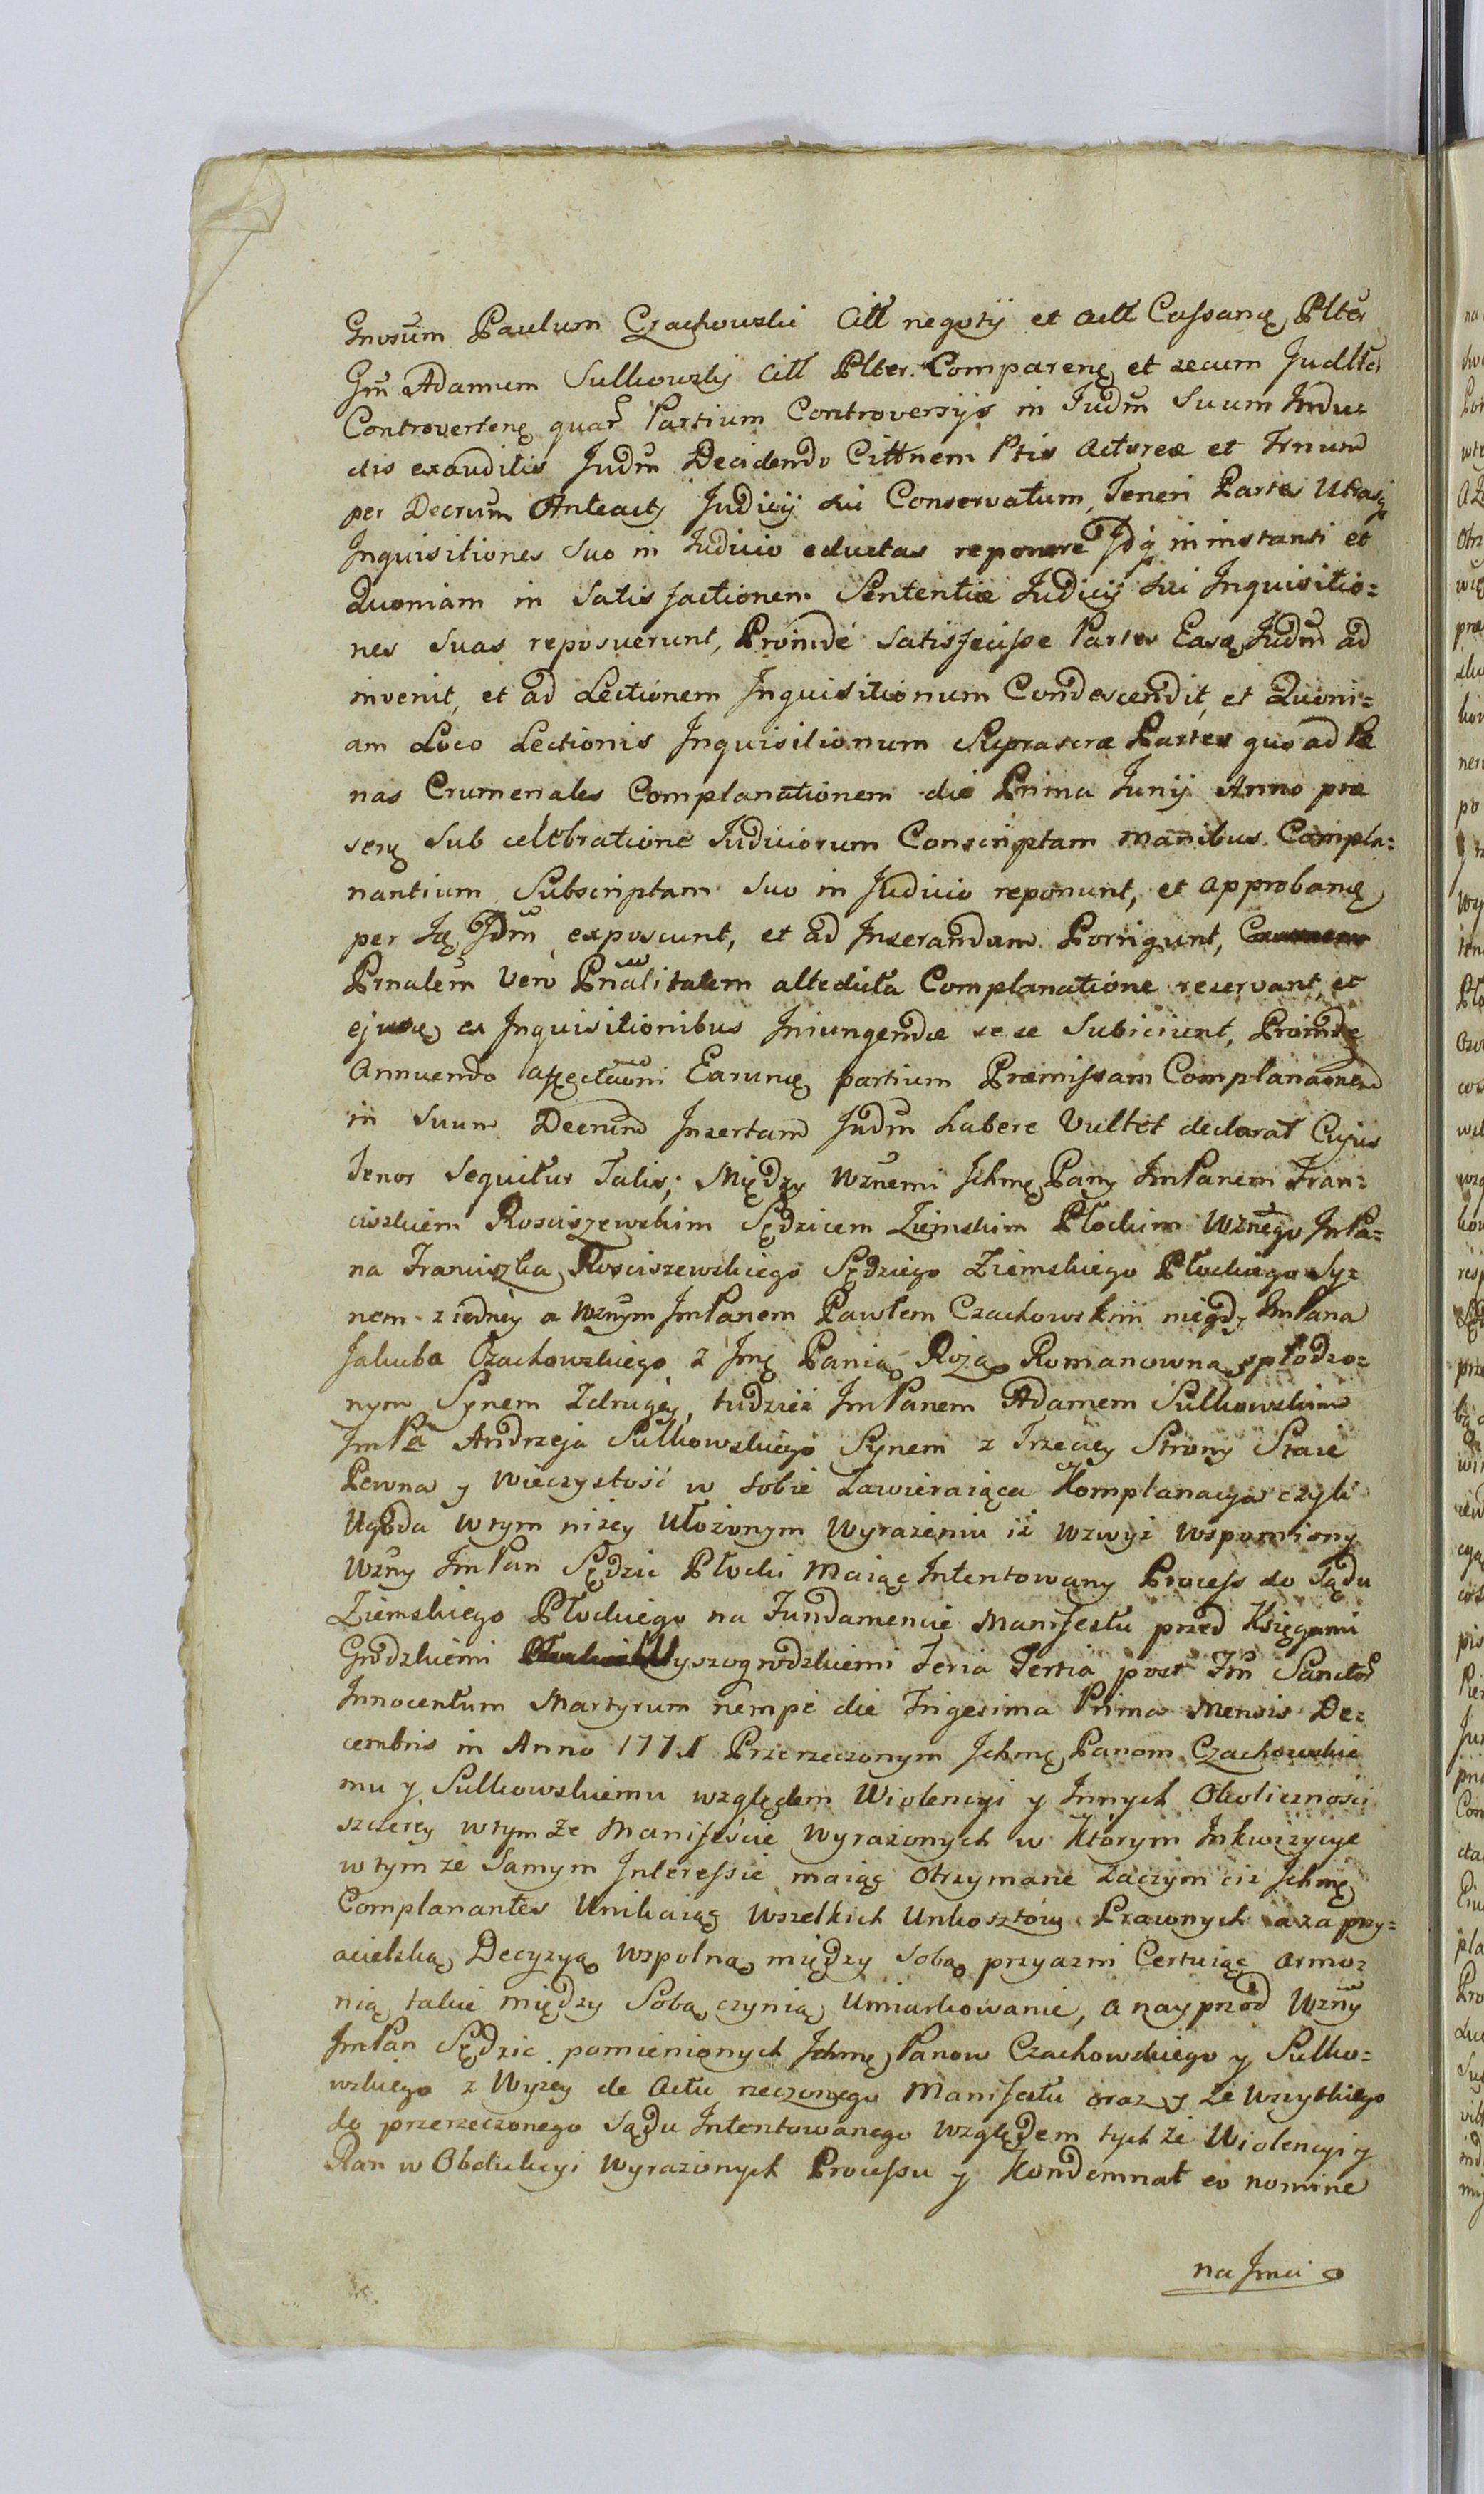 Gnosum Paulum Czachowski Citt negotij et actt Cassanę Plter
Gm Adamum Sulkowski Citt Plter. Comparenę et secum Judlter
Controvertenę quar Partium Controversijs in Judm Suum Induc
ctis exauditis Judm Decidendo Cittnem Ptis actoreæ et Trnum
per Decrum Anteacti Judicij sui Conservatum, Teneri Partes Utrasq
Inquisitiones Suo in Judicio eductas reponere Idq in instanti et
Quoniam in Satisfactionem Sententiæ Judicij sui Inquisitio=
nes Suas reposuerunt, Proindé Satisfecisse Partes Easę Judm ad
invenit, et ad Lectionem Inquisitionum Condescendit, et Quoni=
am Loco Lectionis Inquisitionum Suprascræ Partes quo ad Pæ
nas Crumenales Complanationem die Prima Junij Anno præ
senę Sub celebratione Judiciorum Conscriptam manibus Compla=
nantium Subscriptam Suo in Judicio reponunt, et approbanę
per Ię Jdm exposcunt, et ad Inserandum Porrigunt,
Prnalem Vero Pnalitatem altedicta Complanatione reservant, et
ejusdę ex Inquisitionibus Iniungendæ se se Subiciunt, Proinde
Annuendo affectaoni Earundę partium Præmissam Complanaonem
in Suum Decrum Insertam Judm habere Vult et declarat Cujus
Tenor Sequitur Talis; Między Wznemi Ichmę Pany ImPanem Fran=
ciszkiem Rosciszewskim Sędzicem Ziemskim Płockim Wznego ImPa=
na Franciszka Rosciszewskiego Sędziego Ziemskiego Płockiego Sy=
nem z iedney a Wznym ImPanem Pawłem Czachowskim niegdy ImPana
Jakuba Czachowskiego z Jmę Panią Rozą Romanowną spłodzo=
nym Synem Zdrugey, tudziesz ImPanem Adamem Sulkowskim
ImPa Andrzeja Sulkowskiego Synem z Trzeciey Strony Staie
Pewna y wieczystość w sobie Zawieraiąca Komplanacya czyli
Ugoda w tym nizey Ułożonym Wyrazeniu iż wzwyż wspomiony
Wzny ImPan Sędzic Płocki Maiąc Intentowany Process do Sądu
Ziemskiego Płockiego na Fundamencie Manifestu przed Księgami
Grodzkiemi Wyszogrodzkiemi Feria Tertia post Fm Sanctor
Innocentum Martyrum nempe die Trigesima Prima Mensis De=
cembris in Anno 1771 Przerzeczonym Ichmę Panom Czachowskie
mu y Sulkowskiemu względem Wiolencyi y Innych Okoliczności
szczerey w tym ze Manifeście Wyrażonych w którym Inkwizycye
w tym ze Samym Interessie maiąc Otrzymane zaczym ciż Ichmę
Complanantes Unikaiąc Wszelkich Unkosztów Prawnych a za przy=
acielską Decyzyą Wspolną między Sobą przyazni Certuiąc armo=
nią takie między Sobą czynią Umiarkowanie, a nayprzod Wzny
ImPan Sędzic pomienionych Ichmę Panow Czachowskiego y Sulko=
wskiego z Wyzey de Actu rzeczonego Manifestu oraz y Ze wszystkiego
do przerzeczonego Sądu Intentowanego Względem tych że Wiolencyi y
Ran w Obdukcyi Wyrazionych Processu y Kondemnat eo nomine
na Jmci